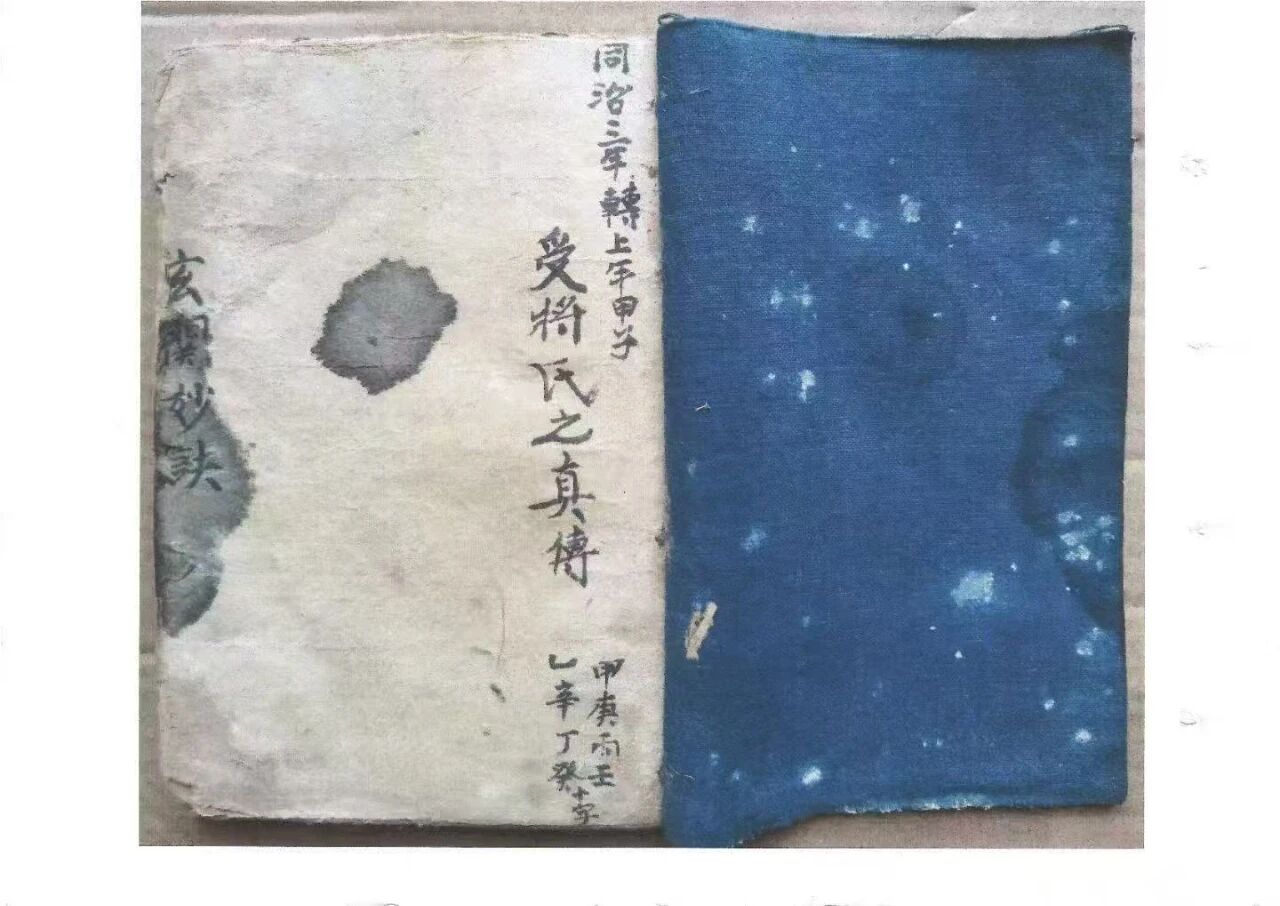 同治三年轉上年甲子
受將氏之真傳
甲庚丙壬
乙辛丁癸十字
玄関妙訣